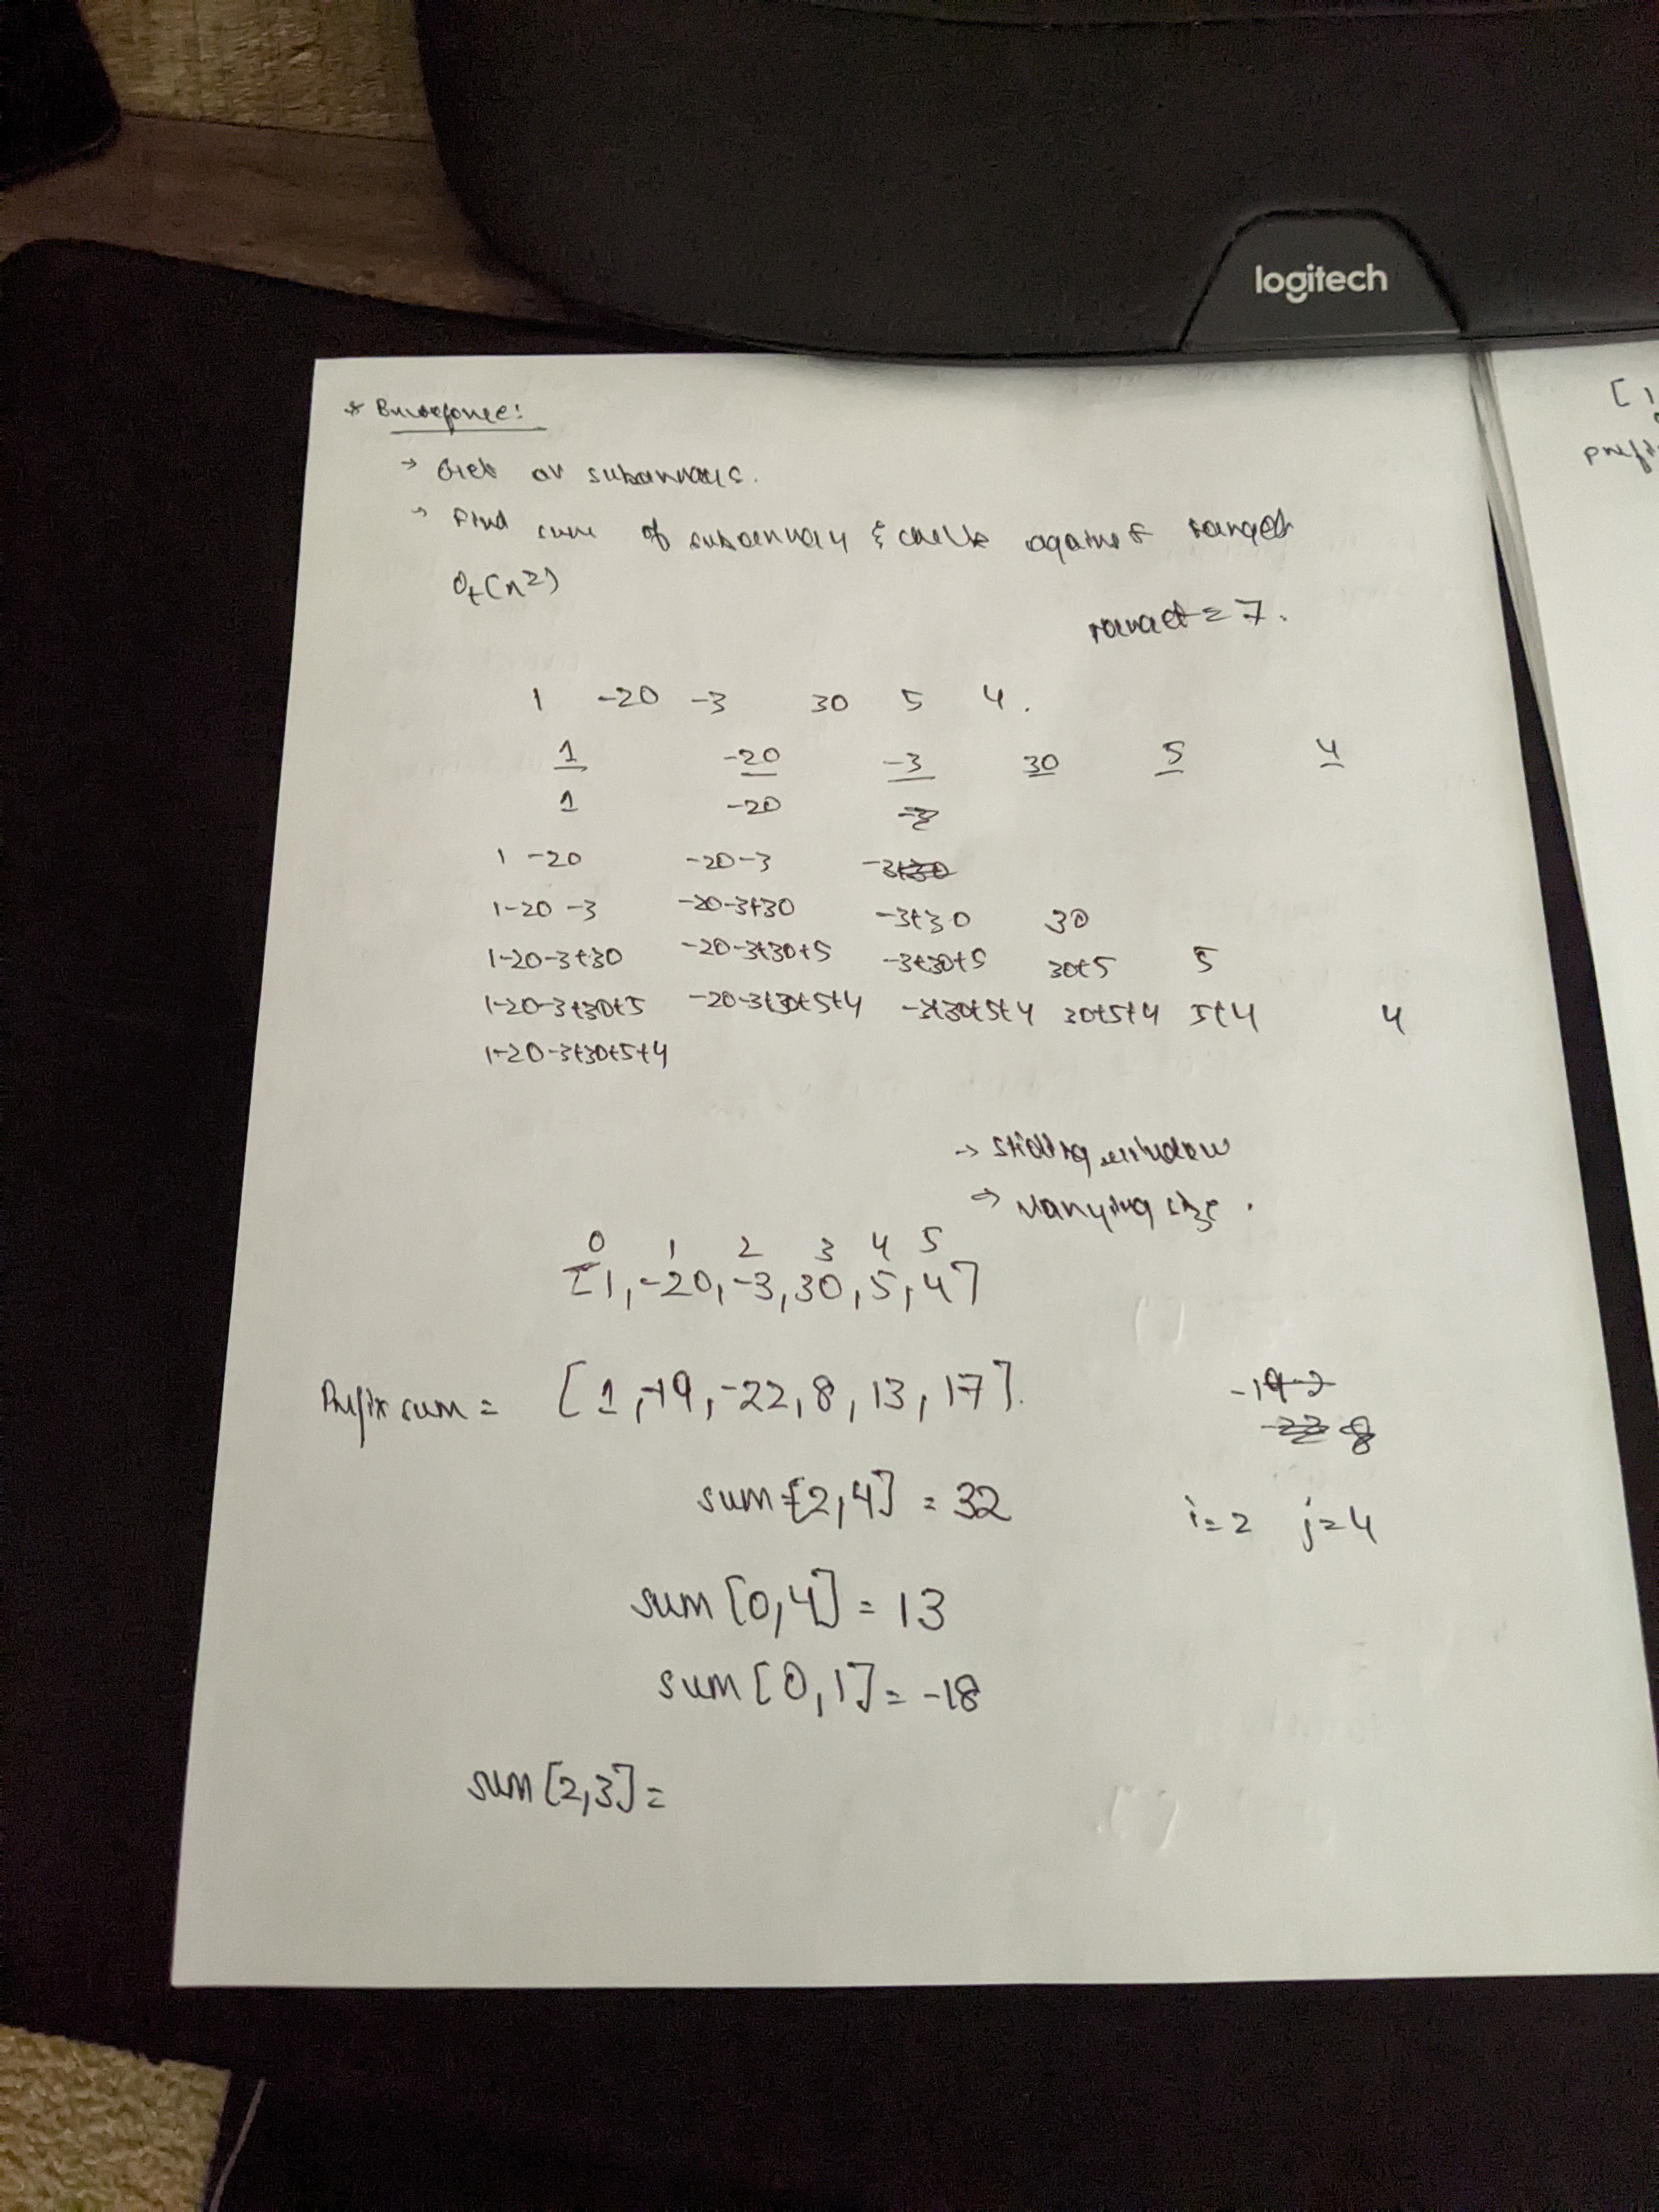 logitech
* Bruteforce:
→ Get all subarrays.
→ Find sum of subarray & check against target
Ot(n²)
target = 7.
1 -20 -3 30 5 4.
1 -20 -3 30 5 4
1 -20
1 -20 -20-3
1-20 -3 -20-3+30 -3+30 30
1-20-3+30 -20-3+30+5 -3+30+5 30+5 5
1-20-3+30+5 -20-3+30+5+4 -3+30+5+4 30+5+4 5+4 4
1-20-3+30+5+4
→ Sliding window
→ Varying size.
0 1 2 3 4 5
[1,-20,-3,30,5,4]
Prefix sum = [1,-19,-22,8,13,17].
sum[2,4] = 32
i=2 j=4
sum[0,4] = 13
sum[0,1] = -18
sum[2,3] =
[1
prefi